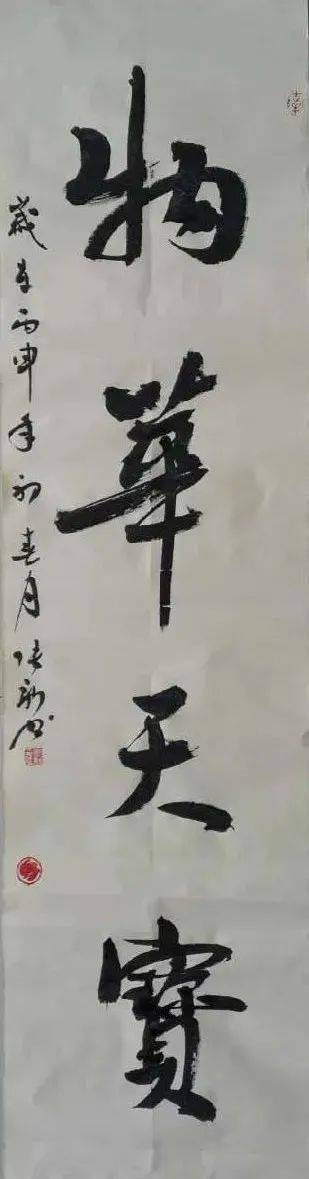 物華天寶
歲在丙申年初春月張新